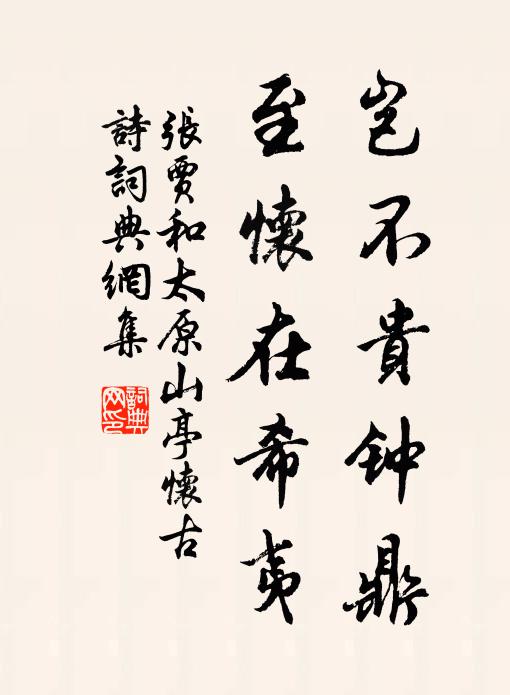 岂不貴钟鼎
至懷在希夷
張贾和太原山亭懷古
詩詞典網集
詞典
网印